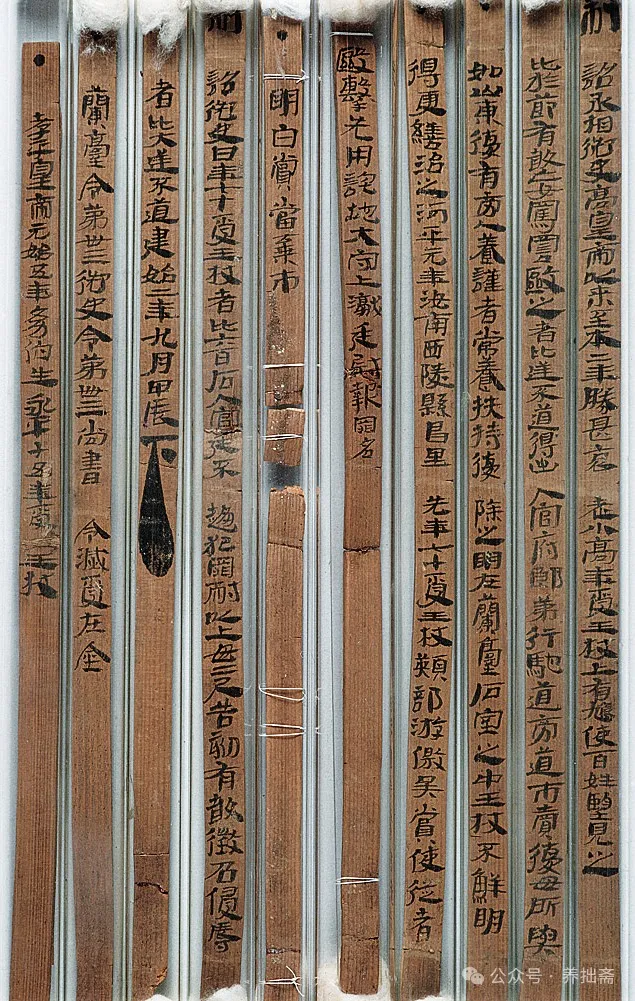 制詔丞相御史高皇帝以來至本二年勝甚哀老小高年受王杖上有鳩使百姓望見之
比於節有敢妄罵詈毆之者比逆不道得出入官府郎第行馳道旁道市賣復毋所與
如山東復有旁人養謹者常養扶持復除之明在蘭臺石室之中王杖不鮮明
得更繕治之河平元年汝南西陵縣昌里先年七十受王杖熲部游徼吳賞使從者
毆擊先用詫地大守上讞廷尉報罪名
明白賞當棄市
制詔御史曰年七十受王杖者比六百石入官廷不趨犯罪耐以上毋二尺告劾有敢徵召侵辱
者比大逆不道建始二年九月甲辰下
蘭臺令第卅三御史令第卌三尚書令滅受在金
孝平皇帝元始五年幼伯生永平十五年受王杖
公众号 · 养拙斋